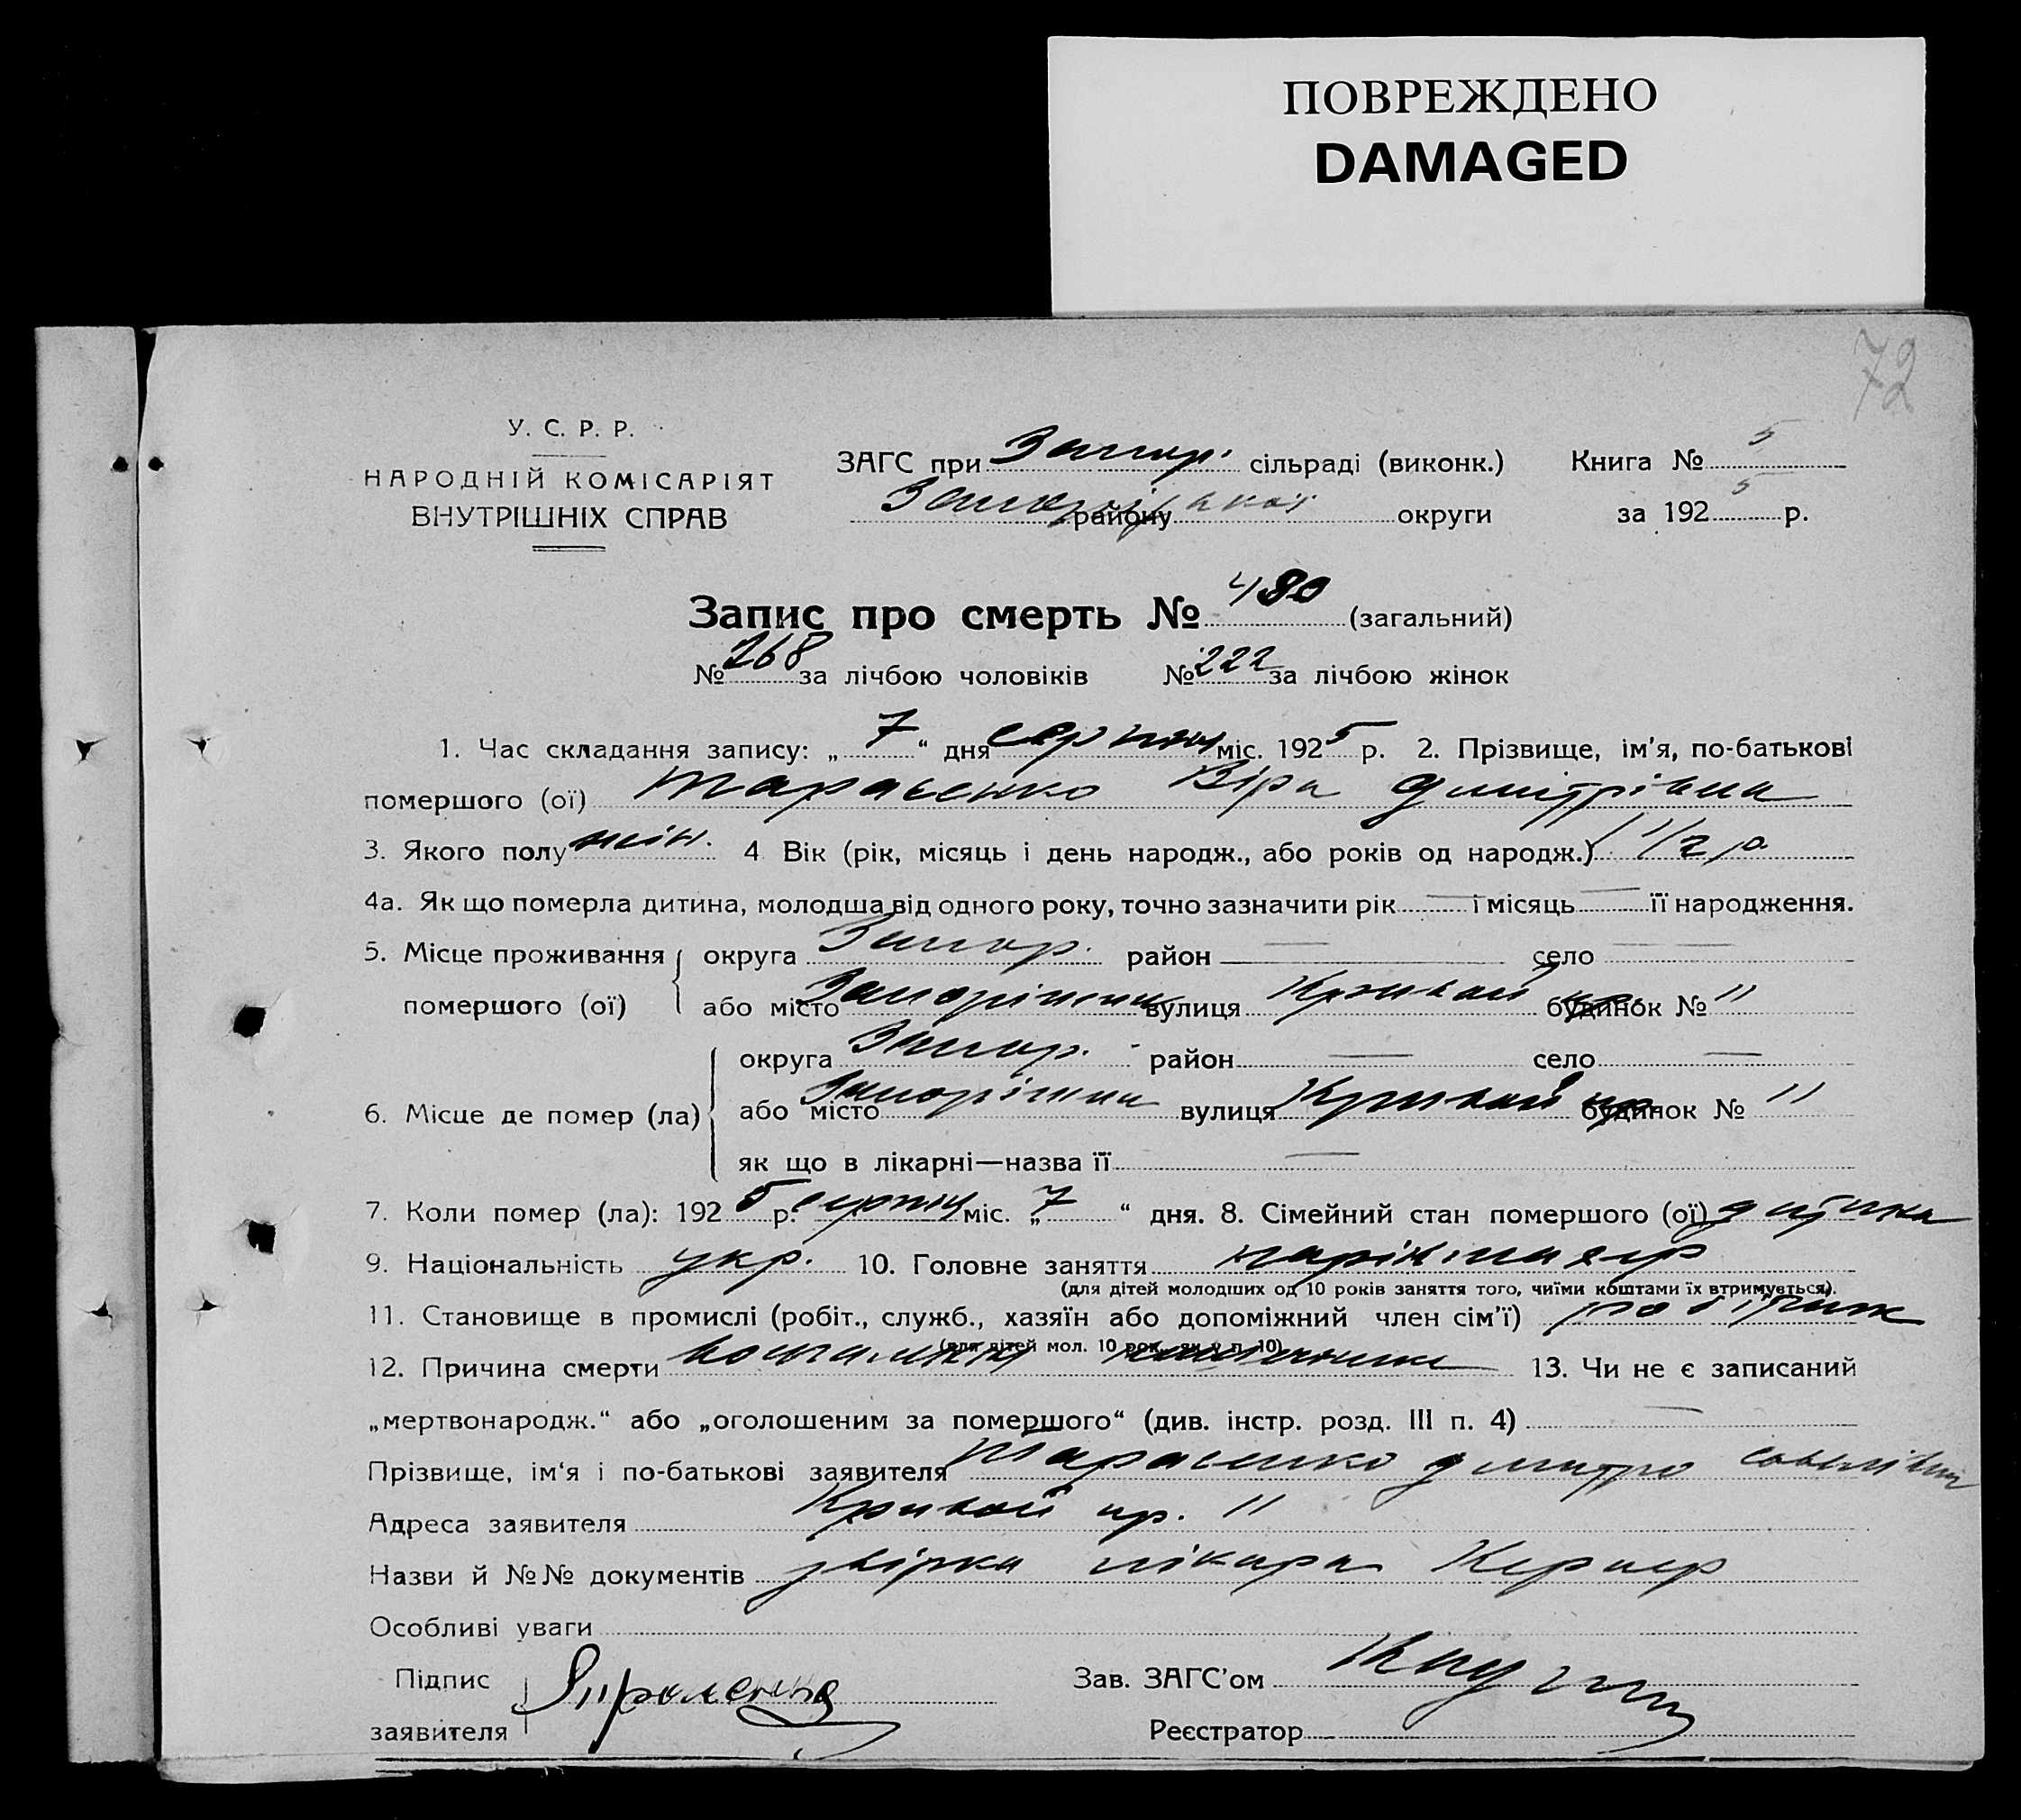 ПОВРЕЖДЕНО
DAMAGED
72
У. С. Р. Р.
НАРОДНІЙ КОМІСАРІЯТ
ВНУТРІШНІХ СПРАВ
ЗАГС при Запор. сільраді (виконк.) Книга № 5
Запорізької району округи за 1925 р.
Запис про смерть № 490 (загальний)
№ 268 за лічбою чоловіків № 222 за лічбою жінок
1. Час складання запису: „7“ дня серпня міс. 1925 р. 2. Прізвище, ім'я, по-батькові
помершого (ої) Тарасенко Віра Дмитрівна
3. Якого полу жін. 4 Вік (рік, місяць і день народж., або років од народж.) 1 1/2 р.
4а. Як що померла дитина, молодша від одного року, точно зазначити рік — і місяць — її народження.
5. Місце проживання помершого (ої) округа Запор. район — село —
або місто Запоріжжя вулиця Кривой пр. будинок № 11
6. Місце де помер (ла) округа Запор. район — село —
або місто Запоріжжя вулиця Кривой пр. будинок № 11
як що в лікарні—назва її —
7. Коли помер (ла): 1925 р. серпня міс. „7“ дня. 8. Сімейний стан помершого (ої) дитина
9. Національність укр. 10. Головне заняття
(для дітей молодших од 10 років заняття того, чиїми коштами їх втримується).
11. Становище в промислі (робіт., служб., хазяїн або допоміжний член сім'ї) робітник
(для дітей мол. 10 рок., як у п. 10)
12. Причина смерти 13. Чи не є записаний
„мертвонародж.“ або „оголошеним за помершого“ (див. інстр. розд. III п. 4) —
Прізвище, ім'я і по-батькові заявителя Тарасенко Дмитро
Адреса заявителя Кривой пр. 11
Назви й №№ документів лікаря
Особливі уваги
Підпис заявителя
Зав. ЗАГС'ом
Реєстратор